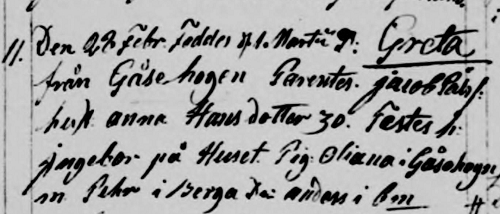 11. Den 28 Febr. Föddes d. 1. Martii D: Greta
från Gåsehogen Parentes. Jacob Påls
hust anna Hans dotter 30. Testes h.
jngebor på Huset. Pig. Oliana i Gåsehogen
m Pehr i Berga Dr: anders i bm